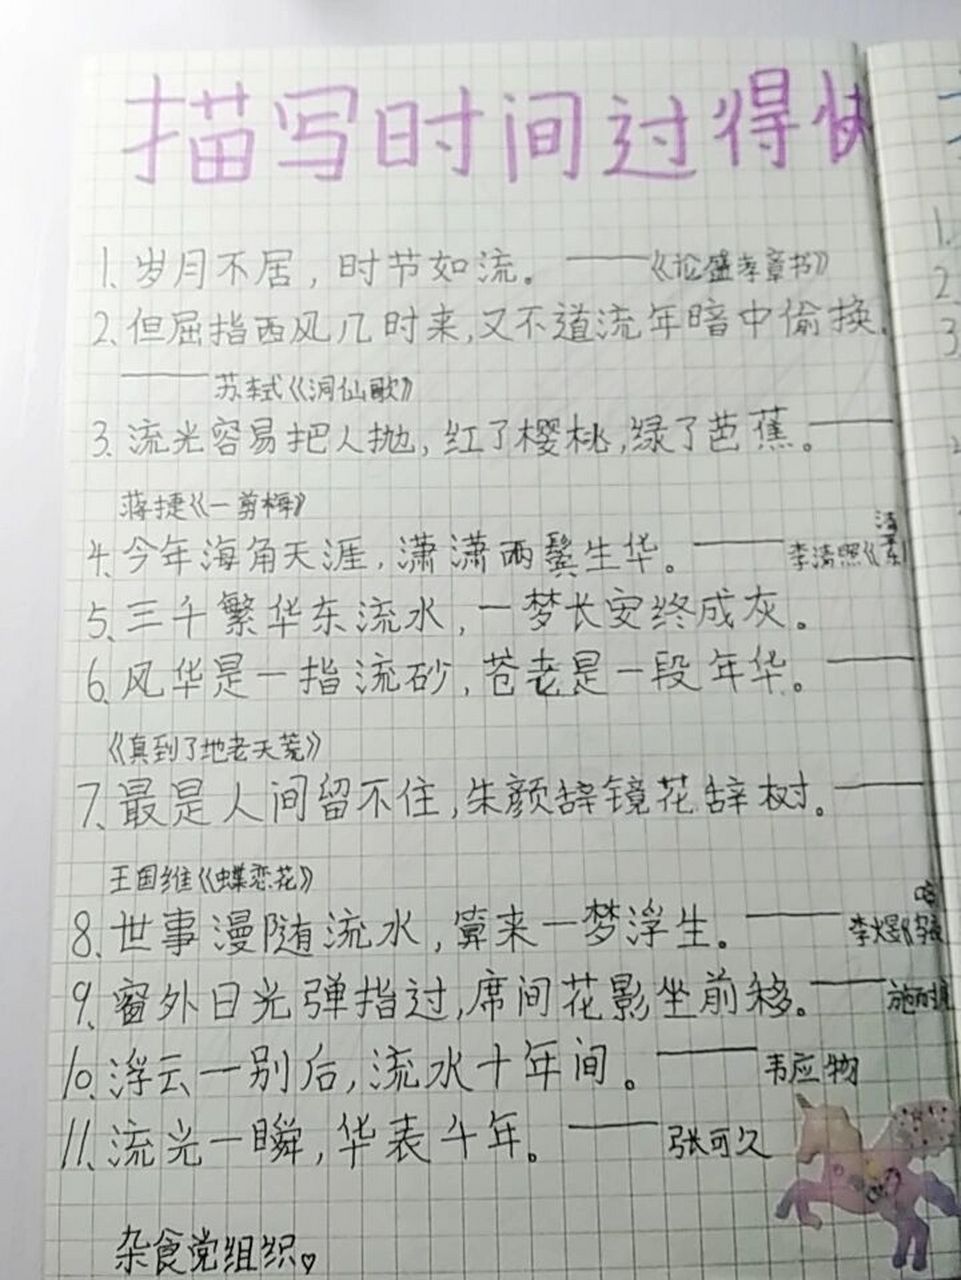 描写时间过得快
1、岁月不居，时节如流。——《论盛孝章书》
2、但屈指西风几时来,又不道流年暗中偷换.
——苏轼《洞仙歌》
3、流光容易把人抛,红了樱桃,绿了芭蕉。——
蒋捷《一剪梅》
4、今年海角天涯,潇潇两鬓生华。——李清照《清
5、三千繁华东流水,一梦长安终成灰。
6、风华是一指流砂,苍老是一段年华。——
《真到了地老天荒》
7、最是人间留不住,朱颜辞镜花辞树。——
王国维《蝶恋花》
8、世事漫随流水,算来一梦浮生。——李煜《
9、窗外日光弹指过,席间花影坐前移。——施耐
10、浮云一别后,流水十年间。——韦应物
11、流光一瞬,华表千年。——张可久
杂食党组织♡
1.
2.
3